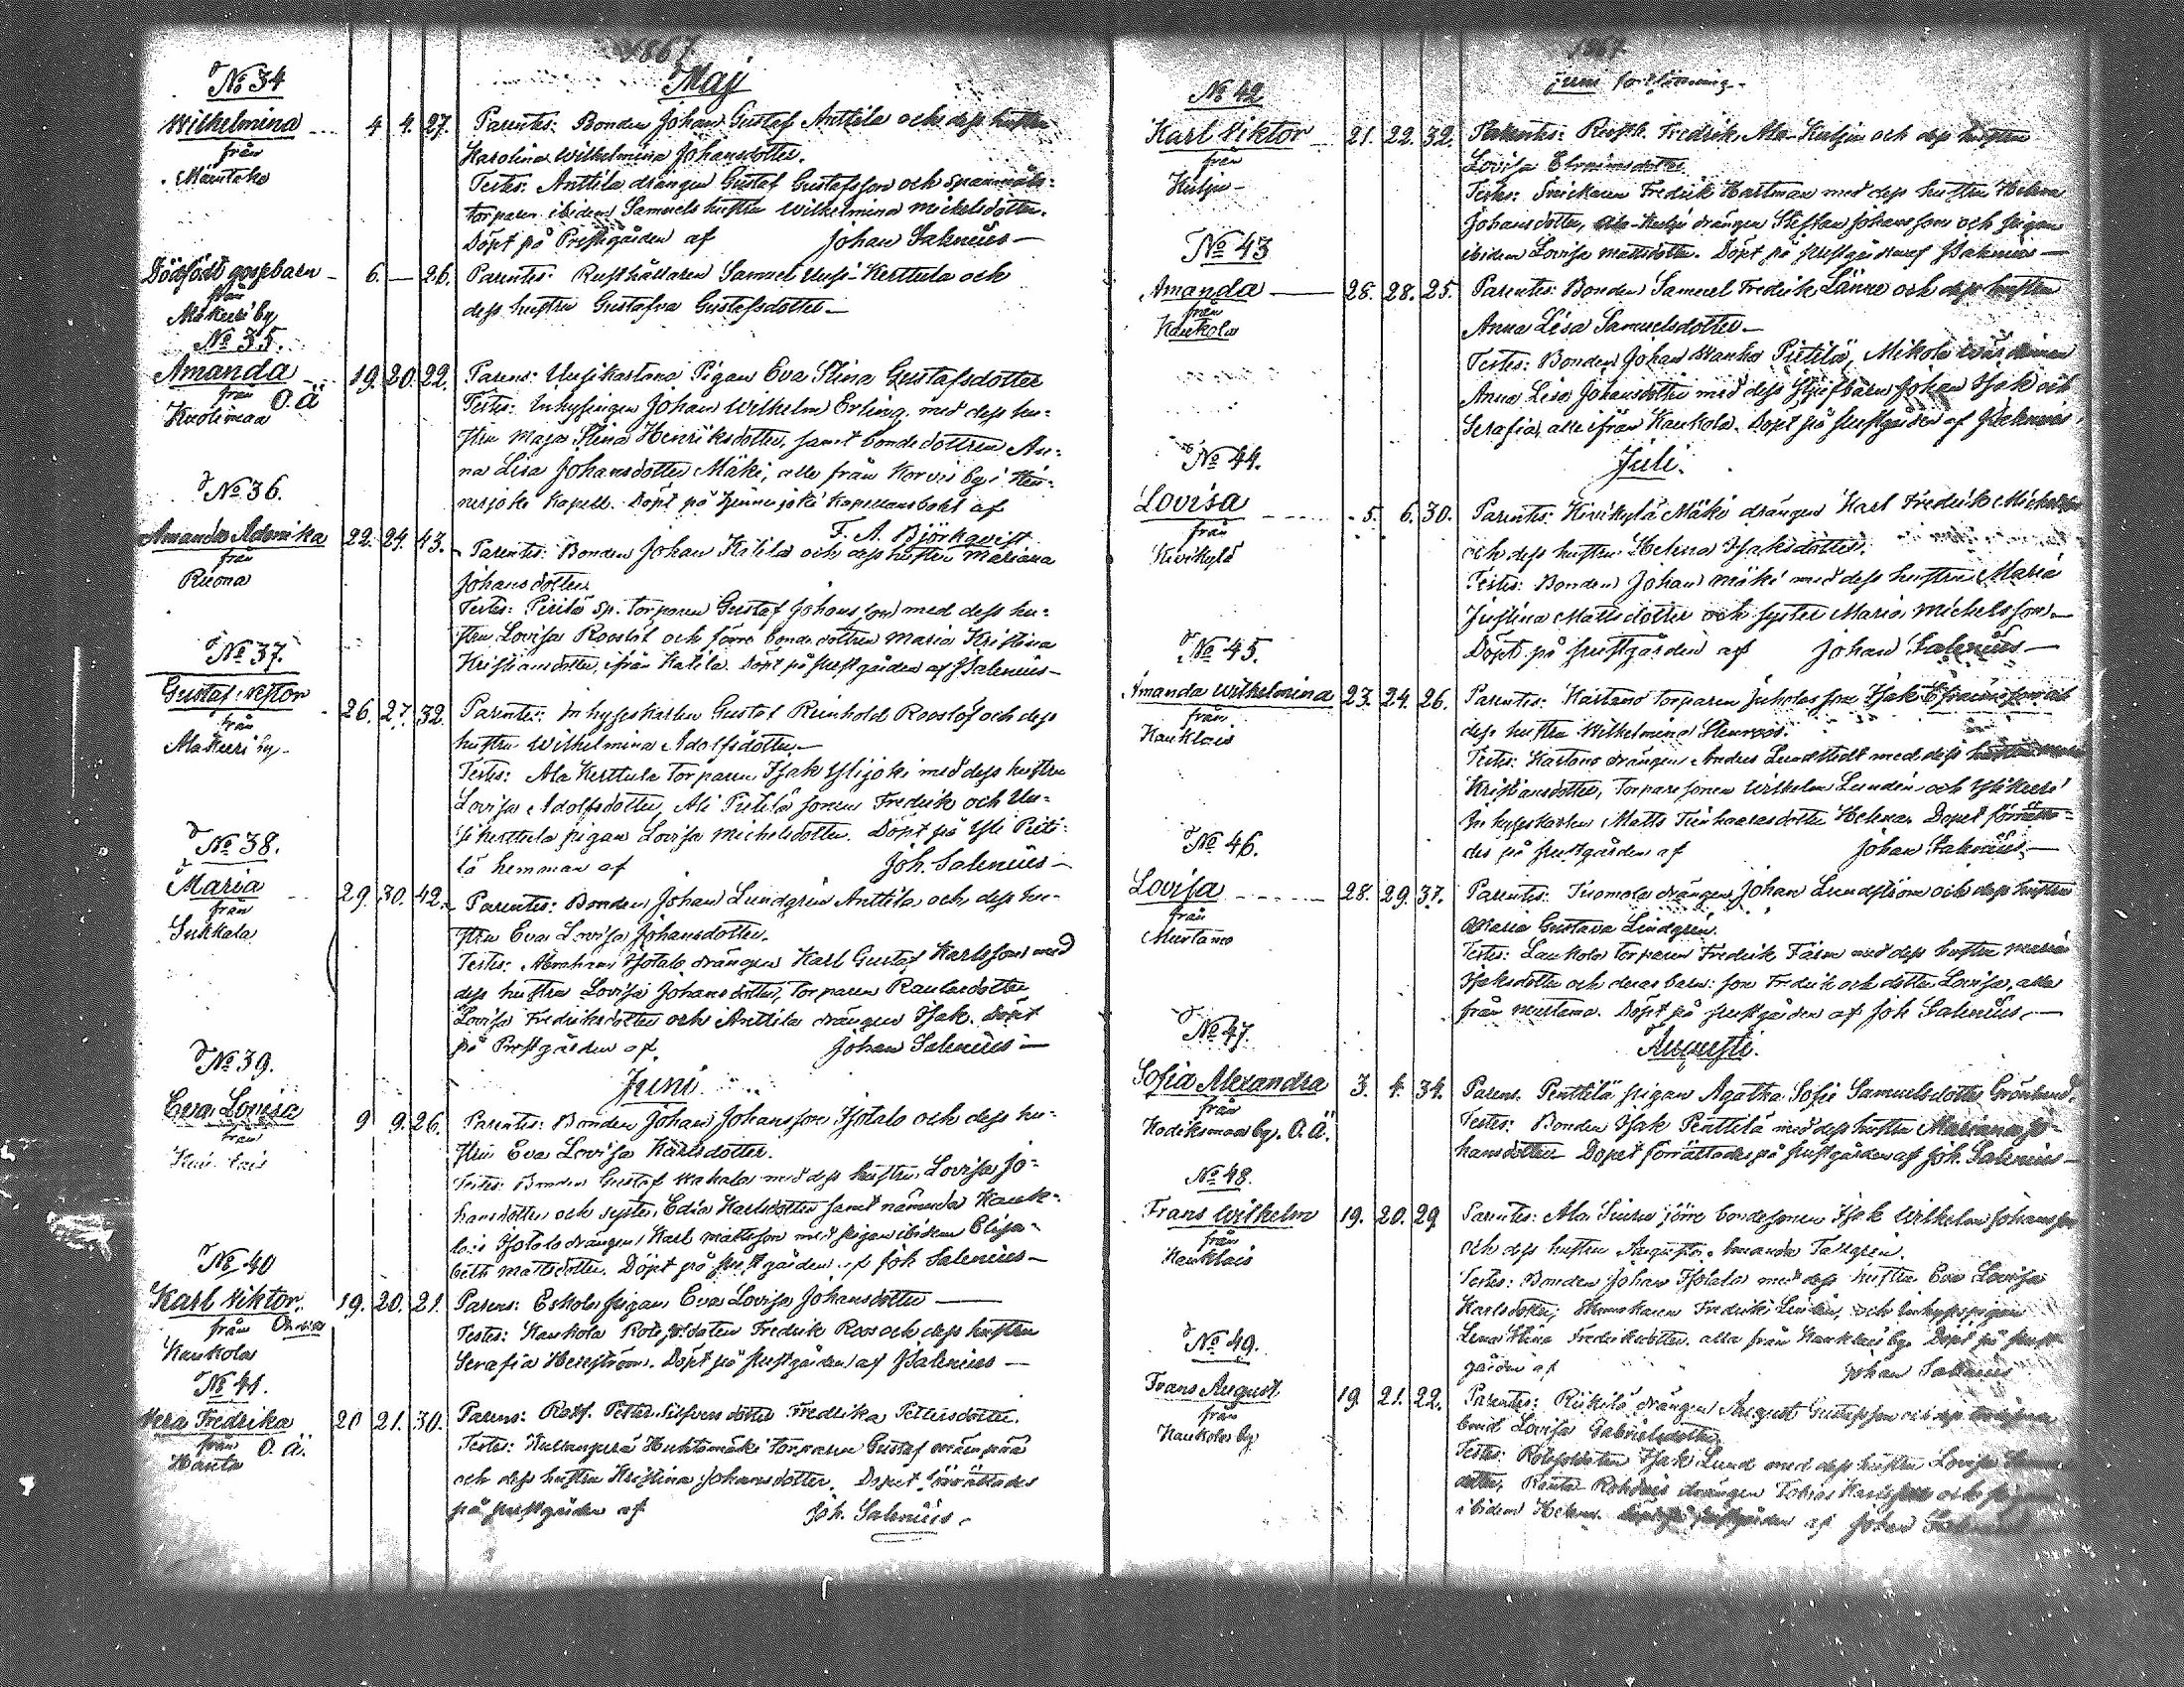 1867
Maj
No 34
Wilhelmina 4 4. 27. Parentes: Bonden Johan Gustaf Anttila och dess hustru
från Karolina Wilhelmina Johansdotter.
Mäntaka Testes: Anttila drängen Gustaf Gustafsson och Spannmåls-
torparen ibidem Samuels hustru Wilhelmina Mickelsdotter.
Döpt på Prestgården af Johan Salenius
Dödfödt gossebarn 6. — 26. Parentes: Rusthållaren Samuel Uusi-Kerttula och
från dess hustru Gustafva Gustafsdotter
Mäkeri by
No 35.
Amanda 19. 20. 22. Parens: Uusikartano Pigan Eva Stina Gustafsdotter
från O. Ä Testes: Inhysingen Johan Wilhelm Erling, med dess hu-
Kuolimaa stru Maja Stina Henriksdotter, samt bondedottren An-
na Lisa Johansdotter Mäki, alle från Korvis by i Hin-
nerjoki Kapell. Döpt på Hinnerjoki Kapellansbohl af
F. A. Björkqvist
No 36.
Amanda Adamika 22. 24. 43. Parentes: Bonden Johan Katila och dess hustru Mariana
från Johansdotter.
Ruona Testes: Pirilä sp. torparen Gustaf Johansson med dess hu-
stru Lovisa Rooslöf och förre bondedottren Maria Kristina
Kristiansdotter, ifrån Katila. Döpt på prestgården af J Salenius
No 37.
Gustaf Nestor 26. 27. 32. Parentes: Inhyseskarlen Gustaf Reinhold Rooslöf och dess
från hustru Wilhelmina Adolfsdotter
Makeri by Testes: Ala Kerttula torparen Isak Ylijoki med dess hustru
Lovisa Adolfsdotter, Ali Pietilä sonen Fredrik och Uu-
si kerttula pigan Lovisa Michelsdotter. Döpt på Yli Pieti-
lä hemman af Joh. Salenius
No 38.
Maria 29. 30. 42. Parentes: Bonden Johan Lundgrén Anttila och dess hu-
från stru Eva Lovisa Johansdotter.
Sukkala Testes: Abraham Isotalo drängen Karl Gustaf Karlsson med
dess hustru Lovisa Johansdotter, torparen Rautasdotter
Lovisa Fredriksdotter och Anttila drängen Isak. Döpt
på Prestgården af Johan Salenius
Juni
No 39.
Eva Lovisa 9 9. 26. Parentes: Bonden Johan Johansson Isotalo och dess hu-
från stru Eva Lovisa Karlsdotter.
Testes: Bonden Gustaf Mahala med dess hustru Lovisa Jo-
hansdotter och syster Edia Karlsdotter samt nämnda Hauk-
lais Isotalo drängen Karl Mattsson med pigan ibidem Elisa-
beth Mattsdotter. Döpt på prestgården af Joh Salenius
No 40
Karl Viktor. 19. 20. 21. Parens: Eskola pigan Eva Lovisa Johansdotter
från Testes: Kaukola Rotesoldaten Fredrik Roos och dess hustru
Kaukola Serafia Hellström. Döpt på prestgården af J Salenius
No 41.
Vera Fredrika 20 21. 30. Parens: Petter Silfvers dotter Fredrika Pettersdotter.
från O. Ä. Testes: Kullanperä Huhtamäki torparen Gustaf
Hanta och dess hustru Kristina Johansdotter. Dopet förrättades
på prestgården af Joh. Salenius.
1867
Juni fortsättning
No 42
Karl Viktor 21. 22. 32. Parentes: Rusth. Fredrik Ala-Kulju och dess hustru
från Lovisa Efraimsdotter
Kulju Testes: Snickaren Fredrik Hartman med dess hustru Helena
Johansdotter, Ala-Kulju drängen Steffan Johansson och pigan
ibidem Lovisa Mattsdotter. Döpt på prestgården af J Salenius
No 43
Amanda 28. 28. 25. Parentes: Bonden Samuel Fredrik Länne och dess hustru
från Anna Lisa Samuelsdotter
Kaukola Testes: Bonden Johan Wanha Pietilä, Mikola
Anna Lisa Johansdotter med dess Styfbarn Johan Isak och
Serafia, alle ifrån Kaukola. Döpt på prestgården af J Salenius
Juli.
No 44.
Lovisa 5. 6. 30. Parentes: Kivikylä Mäki drängen Karl Fredrik Michelsson
från och dess hustru Helena Isaksdotter.
Kivikylä Testes: Bonden Johan Mäki med dess hustru Maria
Justina Mattsdotter och syster Maria Michelsson.
Döpt på prestgården af Johan Salenius
No 45.
Amanda Wilhelmina 23. 24. 26. Parentes: Kartano torparen Isak Efraimsson och
från dess hustru Wilhelmina Stenroos.
Hauklais Testes: Kartano drängen Anders Lundstedt med dess hustru
Kristiansdotter, torparesonen Wilhelm Lundén och Ylikeri
Inhyseskarlen Matts dotter Helena. Dopet förrätta-
des på prestgården af Johan Salenius
No 46.
Lovisa 28. 29. 37. Parentes: Tuomola drängen Johan Lundström och dess hustru
från Maria Gustava Lindgrén.
Murtamo Testes: Laukola torparen Fredrik Färm med dess hustru Maria
Isaksdotter och deras barn: son Fredrik och dotter Lovisa, alla
från Murtamo. Döpt på prestgården af Joh Salenius
Augusti.
No 47.
Sofia Alexandra 3. 4. 34. Parens. Penttilä pigan Agatha Sofie Samuelsdotter Grönlund.
från Testes: Bonden Isak Penttilä med dess hustru Mariana Jo-
Kodiksmaa by. O. Ä. hansdotter Dopet förrättades på prestgården af Joh. Salenius
No 48.
Frans Wilhelm 19. 20. 29 Parentes: Ala förre bondesonen Isak Wilhelm Johansson
från och dess hustru Augusta Amanda Tallgrén.
Hauklais Testes: Bonden Johan Isotalo med dess hustru Eva Lovisa
Karlsdotter, Fredrik Lindén, och Inhysespigan
Lena Stina Fredriksdotter. alla från Hauklais by. Döpt på prest-
gården af Johan Salenius
No 49.
Frans August 19. 21. 22. Parentes: Riikilä drängen August Gustafsson och dess
från Lovisa Gabrielsdotter
Kaukola by Testes: Rotesoldaten Isak Lund med dess hustru Lovisa
dotter, drängen Tobias Karlsson och
ibidem Helena. prestgården af Johan